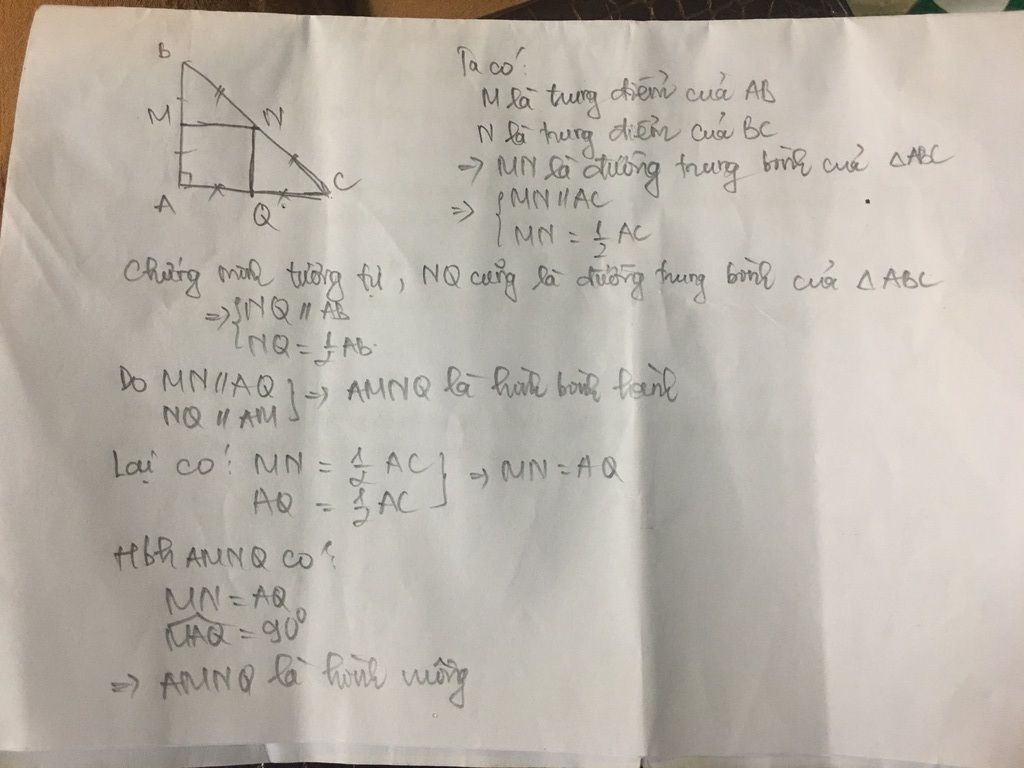 B
M
N
A
Q
C
Ta có:
M là trung điểm của AB
N là trung điểm của BC
→ MN là đường trung bình của △ABC
⇒ { MN // AC
MN = 1/2 AC
Chứng minh tương tự, NQ cũng là đường trung bình của △ABC
⇒ { NQ // AB
NQ = 1/2 AB.
Do MN // AQ } ⇒ AMNQ là hình bình hành
NQ // AM
Lại có: MN = 1/2 AC } ⇒ MN = AQ
AQ = 1/2 AC
Hbh AMNQ có:
MN = AQ
MAQ = 90°
⇒ AMNQ là hình vuông